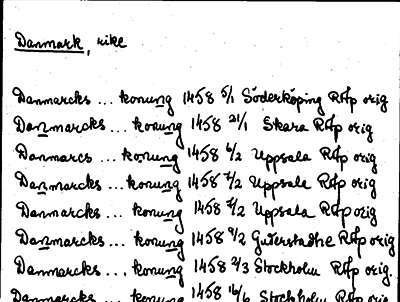 Danmark, rike
Danmarcks ... konung 1458 5/1 Söderköping RAp orig
Danmarcks ... konung 1458 21/1 Skara RAp orig
Danmarcs ... konung 1458 6/2 Uppsala RAp orig
Danmarcks ... konung 1458 7/2 Uppsala RAp orig
Danmarcks ... konung 1458 7/2 Uppsala RAp orig
Danmarcks ... konung 1458 9/2 Guterstadhe RAp orig
Danmarcks ... konung 1458 2/3 Stockholm RAp orig
Danmarcks ... konung 1458 16/6 Stockholm RAp orig